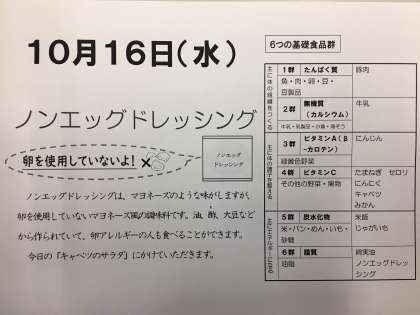 10月16日(水)
ノンエッグドレッシング
卵を使用していないよ!
ノンエッグ
ドレッシング
ノンエッグドレッシングは、マヨネーズのような味がしますが、
卵を使用していないマヨネーズ風の調味料です。油、酢、大豆など
から作られていて、卵アレルギーの人も食べることができます。
今日の「キャベツのサラダ」にかけていただきます。
6つの基礎食品群
主に体の組織をつくる
1群 たんぱく質
魚・肉・卵・豆・
豆製品
豚肉
2群 無機質
(カルシウム)
牛乳・乳製品・小魚・海そう
牛乳
主に体の調子を整える
3群 ビタミンA(β
-カロテン)
緑黄色野菜
にんじん
4群 ビタミンC
その他の野菜・果物
たまねぎ セロリ
にんにく
キャベツ
みかん
主にエネルギーになる
5群 炭水化物
米・パン・めん・いも・
砂糖
米飯
じゃがいも
6群 脂質
油脂
綿実油
ノンエッグドレッ
シング